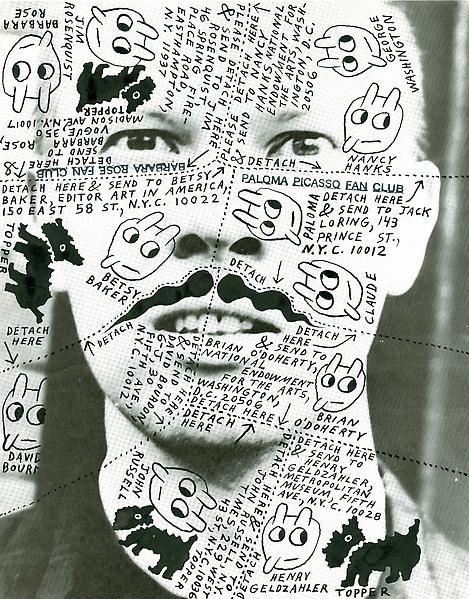 BARBARA
ROSE
JIM
ROSENQUIST
TOPPER
DETACH HERE &
SEND TO
BARBARA ROSE,
VOGUE, 350
MADISON AVE, N.Y. 10017
BARBARA ROSE FAN CLUB
PLEASE DETACH HERE
& SEND TO JIM
ROSENQUIST,
46 SPRING FIRE-
PLACE ROAD,
EASTHAMPTON,
N.Y. 11937
PLEASE DETACH HERE
& SEND TO NANCY
HANKS, NATIONAL
ENDOWMENT FOR
THE ARTS, WASH-
INGTON, D.C.
20506
GEORGE
WASHINGTON
NANCY
HANKS
DETACH
PALOMA PICASSO FAN CLUB
DETACH HERE & SEND TO BETSY
BAKER, EDITOR ART IN AMERICA,
150 EAST 58 ST., N.Y.C. 10022
PALOMA
DETACH HERE
& SEND TO JACK
LORING, 143
PRINCE ST.,
N.Y.C. 10012
TOPPER
BETSY
BAKER
DETACH
CLAUDE
DETACH
DETACH HERE
DETACH
HERE
& SEND TO
BRIAN O'DOHERTY,
NATIONAL
ENDOWMENT
FOR THE ARTS,
WASHINGTON,
D.C. 20506
DETACH HERE
BRIAN
O'DOHERTY
DETACH HERE
& SEND TO
DAVID BOURDON
FIFTH AVE,
N.Y.C. 10012
DETACH
HERE
DAVID
BOUR
DETACH HERE
& SEND TO
HENRY
GELDZAHLER,
METROPOLITAN
MUSEUM, FIFTH
AVE, N.Y.C. 10028
JOHN
RUSSELL
TOPPER
DETACH HERE
& SEND TO
JOHN RUSSELL,
N.Y. TIMES, 229 WEST
43 ST, N.Y.C. 10036
HENRY
GELDZAHLER
TOPPER